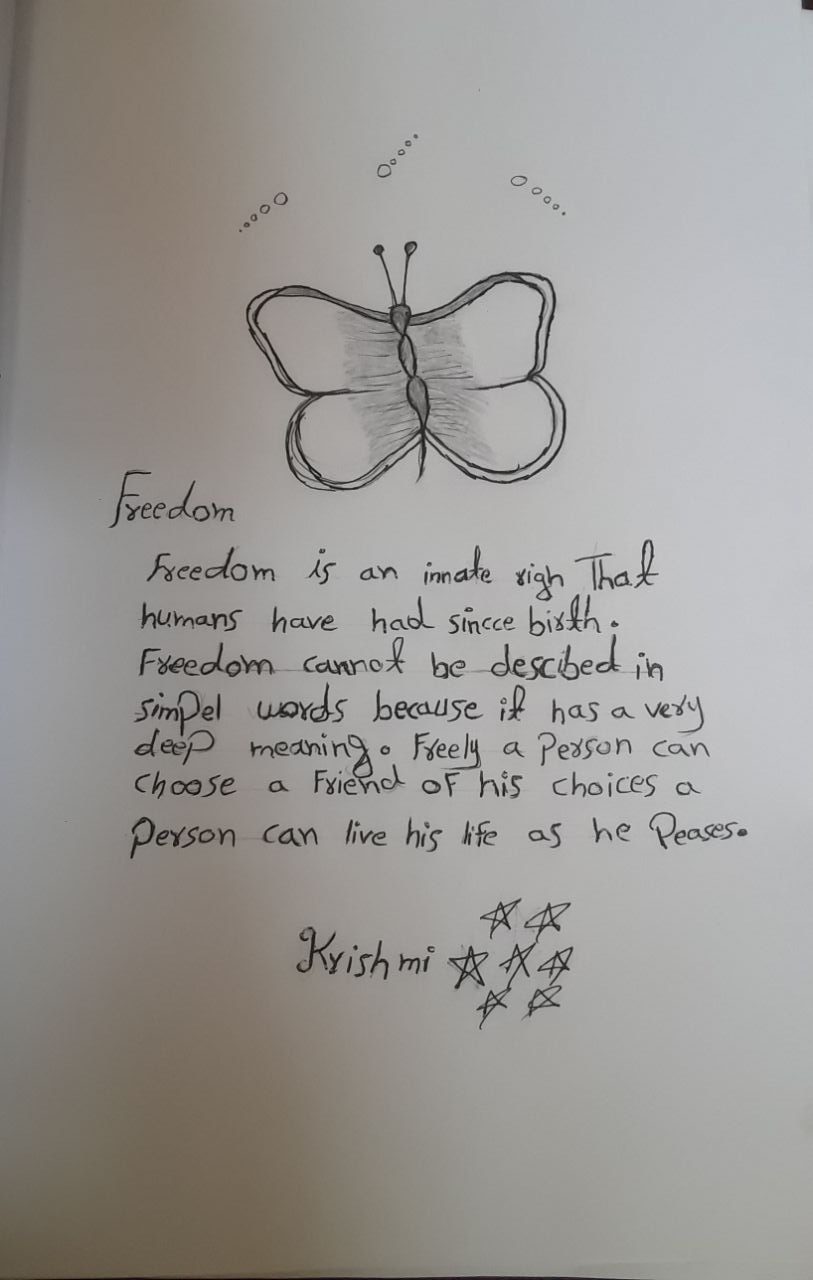 Freedom
Freedom is an innate righ That
humans have had sincce birth.
Freedom cannot be descibed in
simpel words because it has a very
deep meaning. Freely a Person can
choose a Friend of his choices a
Person can live his life as he Peases.
Krishmi